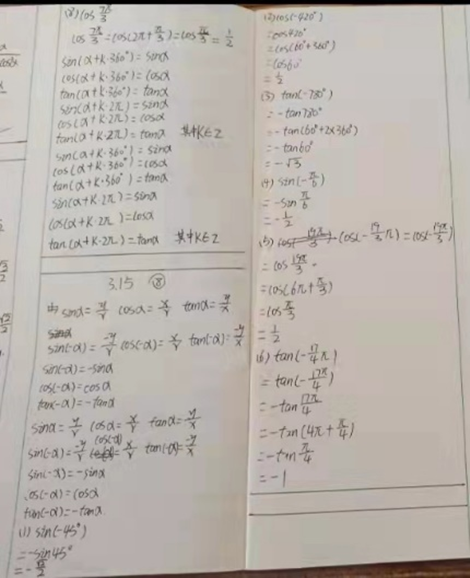 (2) cos 7π/3
cos 7π/3 = cos(2π + π/3) = cos π/3 = 1/2
sin(α+k·360°) = sinα
cos(α+k·360°) = cosα
tan(α+k·360°) = tanα
sin(α+k·2π) = sinα
cos(α+k·2π) = cosα
tan(α+k·2π) = tanα 其中k∈Z
sin(α+k·360°) = sinα
cos(α+k·360°) = cosα
tan(α+k·360°) = tanα
sin(α+k·2π) = sinα
cos(α+k·2π) = cosα
tan(α+k·2π) = tanα 其中k∈Z
3.15 ⑧
由 sinα = y/r cosα = x/r tanα = y/x
sin(-α) = -y/r cos(-α) = x/r tan(-α) = -y/x
sin(-α) = -sinα
cos(-α) = cosα
tan(-α) = -tanα
sinα = y/r cosα = x/r tanα = y/x
sin(-α) = -y/r cos(-α) = x/r tan(-α) = -y/x
sin(-α) = -sinα
cos(-α) = cosα
tan(-α) = -tanα
(1) sin(-45°)
= -sin45°
= -√2/2
(2) cos(-420°)
= cos420°
= cos(60°+360°)
= cos60°
= 1/2
(3) tan(-780°)
= -tan780°
= -tan(60°+2×360°)
= -tan60°
= -√3
(4) sin(-π/6)
= -sin π/6
= -1/2
(5) cos(-19/3 π) = cos(-19π/3)
= cos 19π/3
= cos(6π + π/3)
= cos π/3
= 1/2
(6) tan(-17/4 π)
= tan(-17π/4)
= -tan 17π/4
= -tan(4π + π/4)
= -tan π/4
= -1